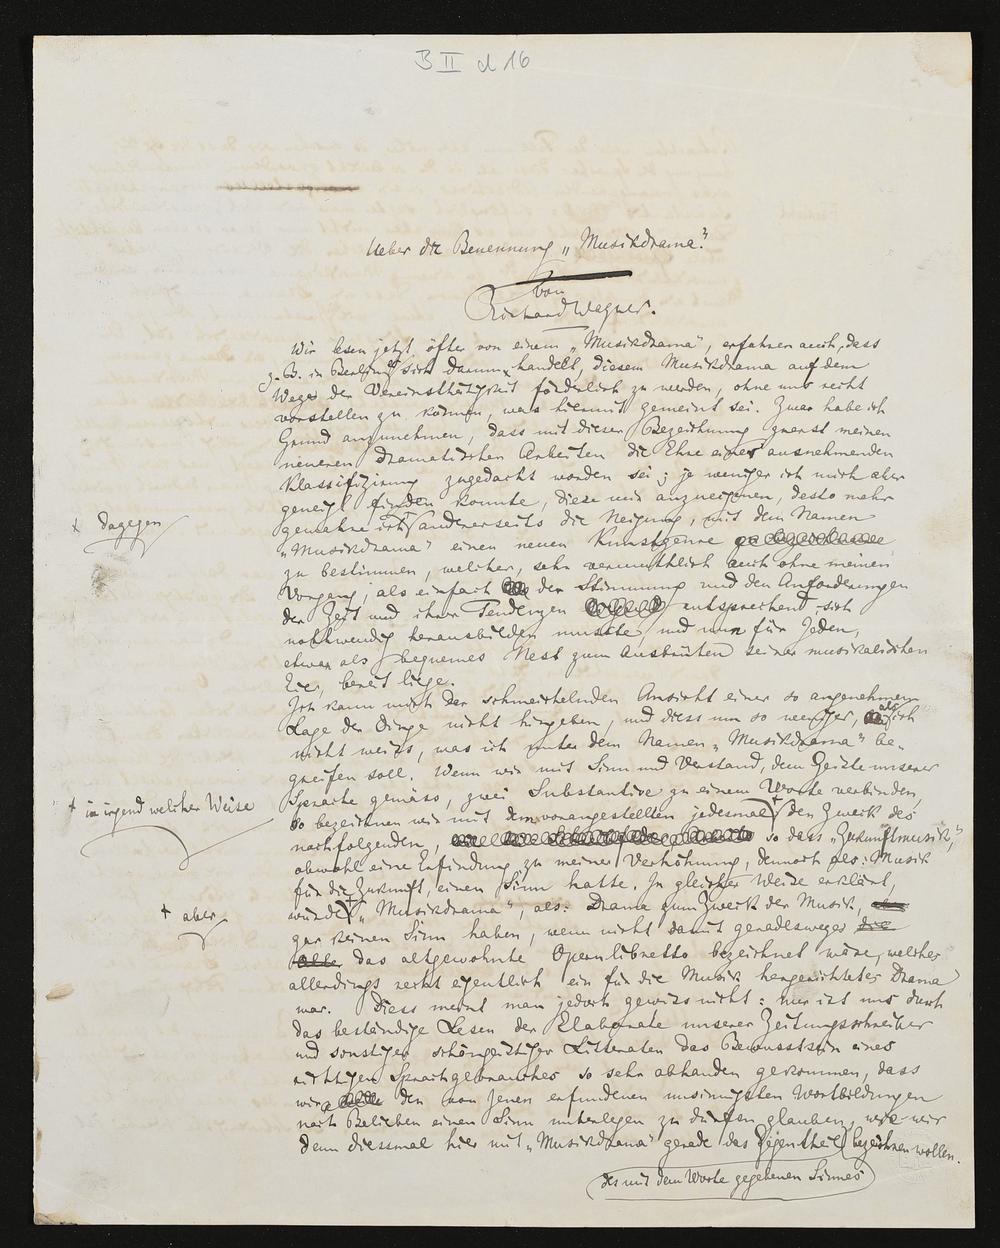 B II d 16
Ueber die Benennung „Musikdrama“.
von
Richard Wagner.
Wir lesen jetzt öfter von einem „Musikdrama“, erfahren auch, dass
z. B. in Berlin es sich darum handelt, diesem Musikdrama auf dem
Wege der Vereinsthätigkeit förderlich zu werden, ohne uns recht
vorstellen zu können, was hiermit gemeint sei. Zwar habe ich
Grund anzunehmen, dass mit dieser Bezeichnung zuerst meinen
neueren dramatischen Arbeiten die Ehre einer ausnehmenden
Klassifizirung zugedacht worden sei; je weniger ich mich aber
geneigt finden konnte, diese mir anzueignen, desto mehr
+ dagegen
gewahre ich + andererseits die Neigung, mit dem Namen
„Musikdrama“ einen neuen Kunstgenre
zu bestimmen, welcher, sehr vermuthlich auch ohne meinen
Vorgang, als einfach der Stimmung und den Anforderungen
der Zeit und ihrer Tendenzen entsprechend, sich
nothwendig herausbilden musste und nun für Jeden,
etwa als bequemes Nest zum Ausbrüten seiner musikalischen
Eier, bereit liege.
Ich kann mich der schmeichelnden Ansicht einer so angenehmen
Lage der Dinge nicht hingeben, und diess um so weniger, als ich
nicht weiss, was ich unter dem Namen „Musikdrama“ be-
greifen soll. Wenn wir mit Sinn und Verstand, dem Geiste unserer
Sprache gemäss, zwei Substantive zu einem Worte verbinden,
+ in irgend welcher Weise
so bezeichnen wir mit dem vorangestellten jedesmal + den Zweck des
nachfolgenden, so dass „Zukunftmusik“,
obwohl eine Erfindung zu meiner Verhöhnung, dennoch als: Musik
für die Zukunft, einen Sinn hatte. In gleicher Weise erklärt,
+ aber
würde + „Musikdrama“, als: Drama zum Zweck der Musik,
gar keinen Sinn haben, wenn nicht damit geradesweges die
das altgewohnte Opernlibretto bezeichnet wäre, welches
allerdings recht eigentlich ein für die Musik hergerichtetes Drama
war. Diess meint man jedoch gewiss nicht: nur ist uns durch
das beständige Lesen der Elaborate unserer Zeitungsschreiber
und sonstiger schöngeistiger Litteraten das Bewusstsein eines
richtigen Sprachgebrauches so sehr abhanden gekommen, dass
wir den von Jenen erfundenen unsinnigsten Wortbildungen
nach Belieben einen Sinn unterlegen zu dürfen glauben, wie wir
denn diessmal hier mit „Musikdrama“ gerade das Gegentheil bezeichnen wollen.
des mit dem Worte gegebenen Sinnes